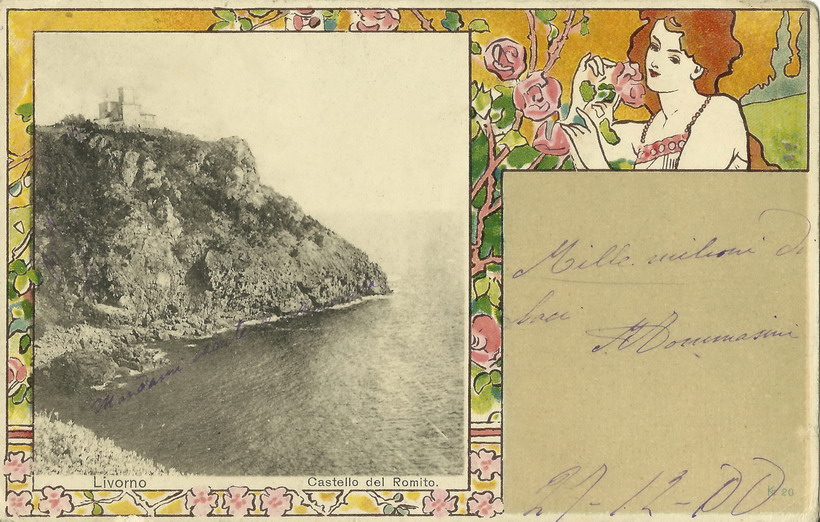 Mille milioni di
baci
Tommasini
27-12-00
Livorno
Castello del Romito.
N. 20